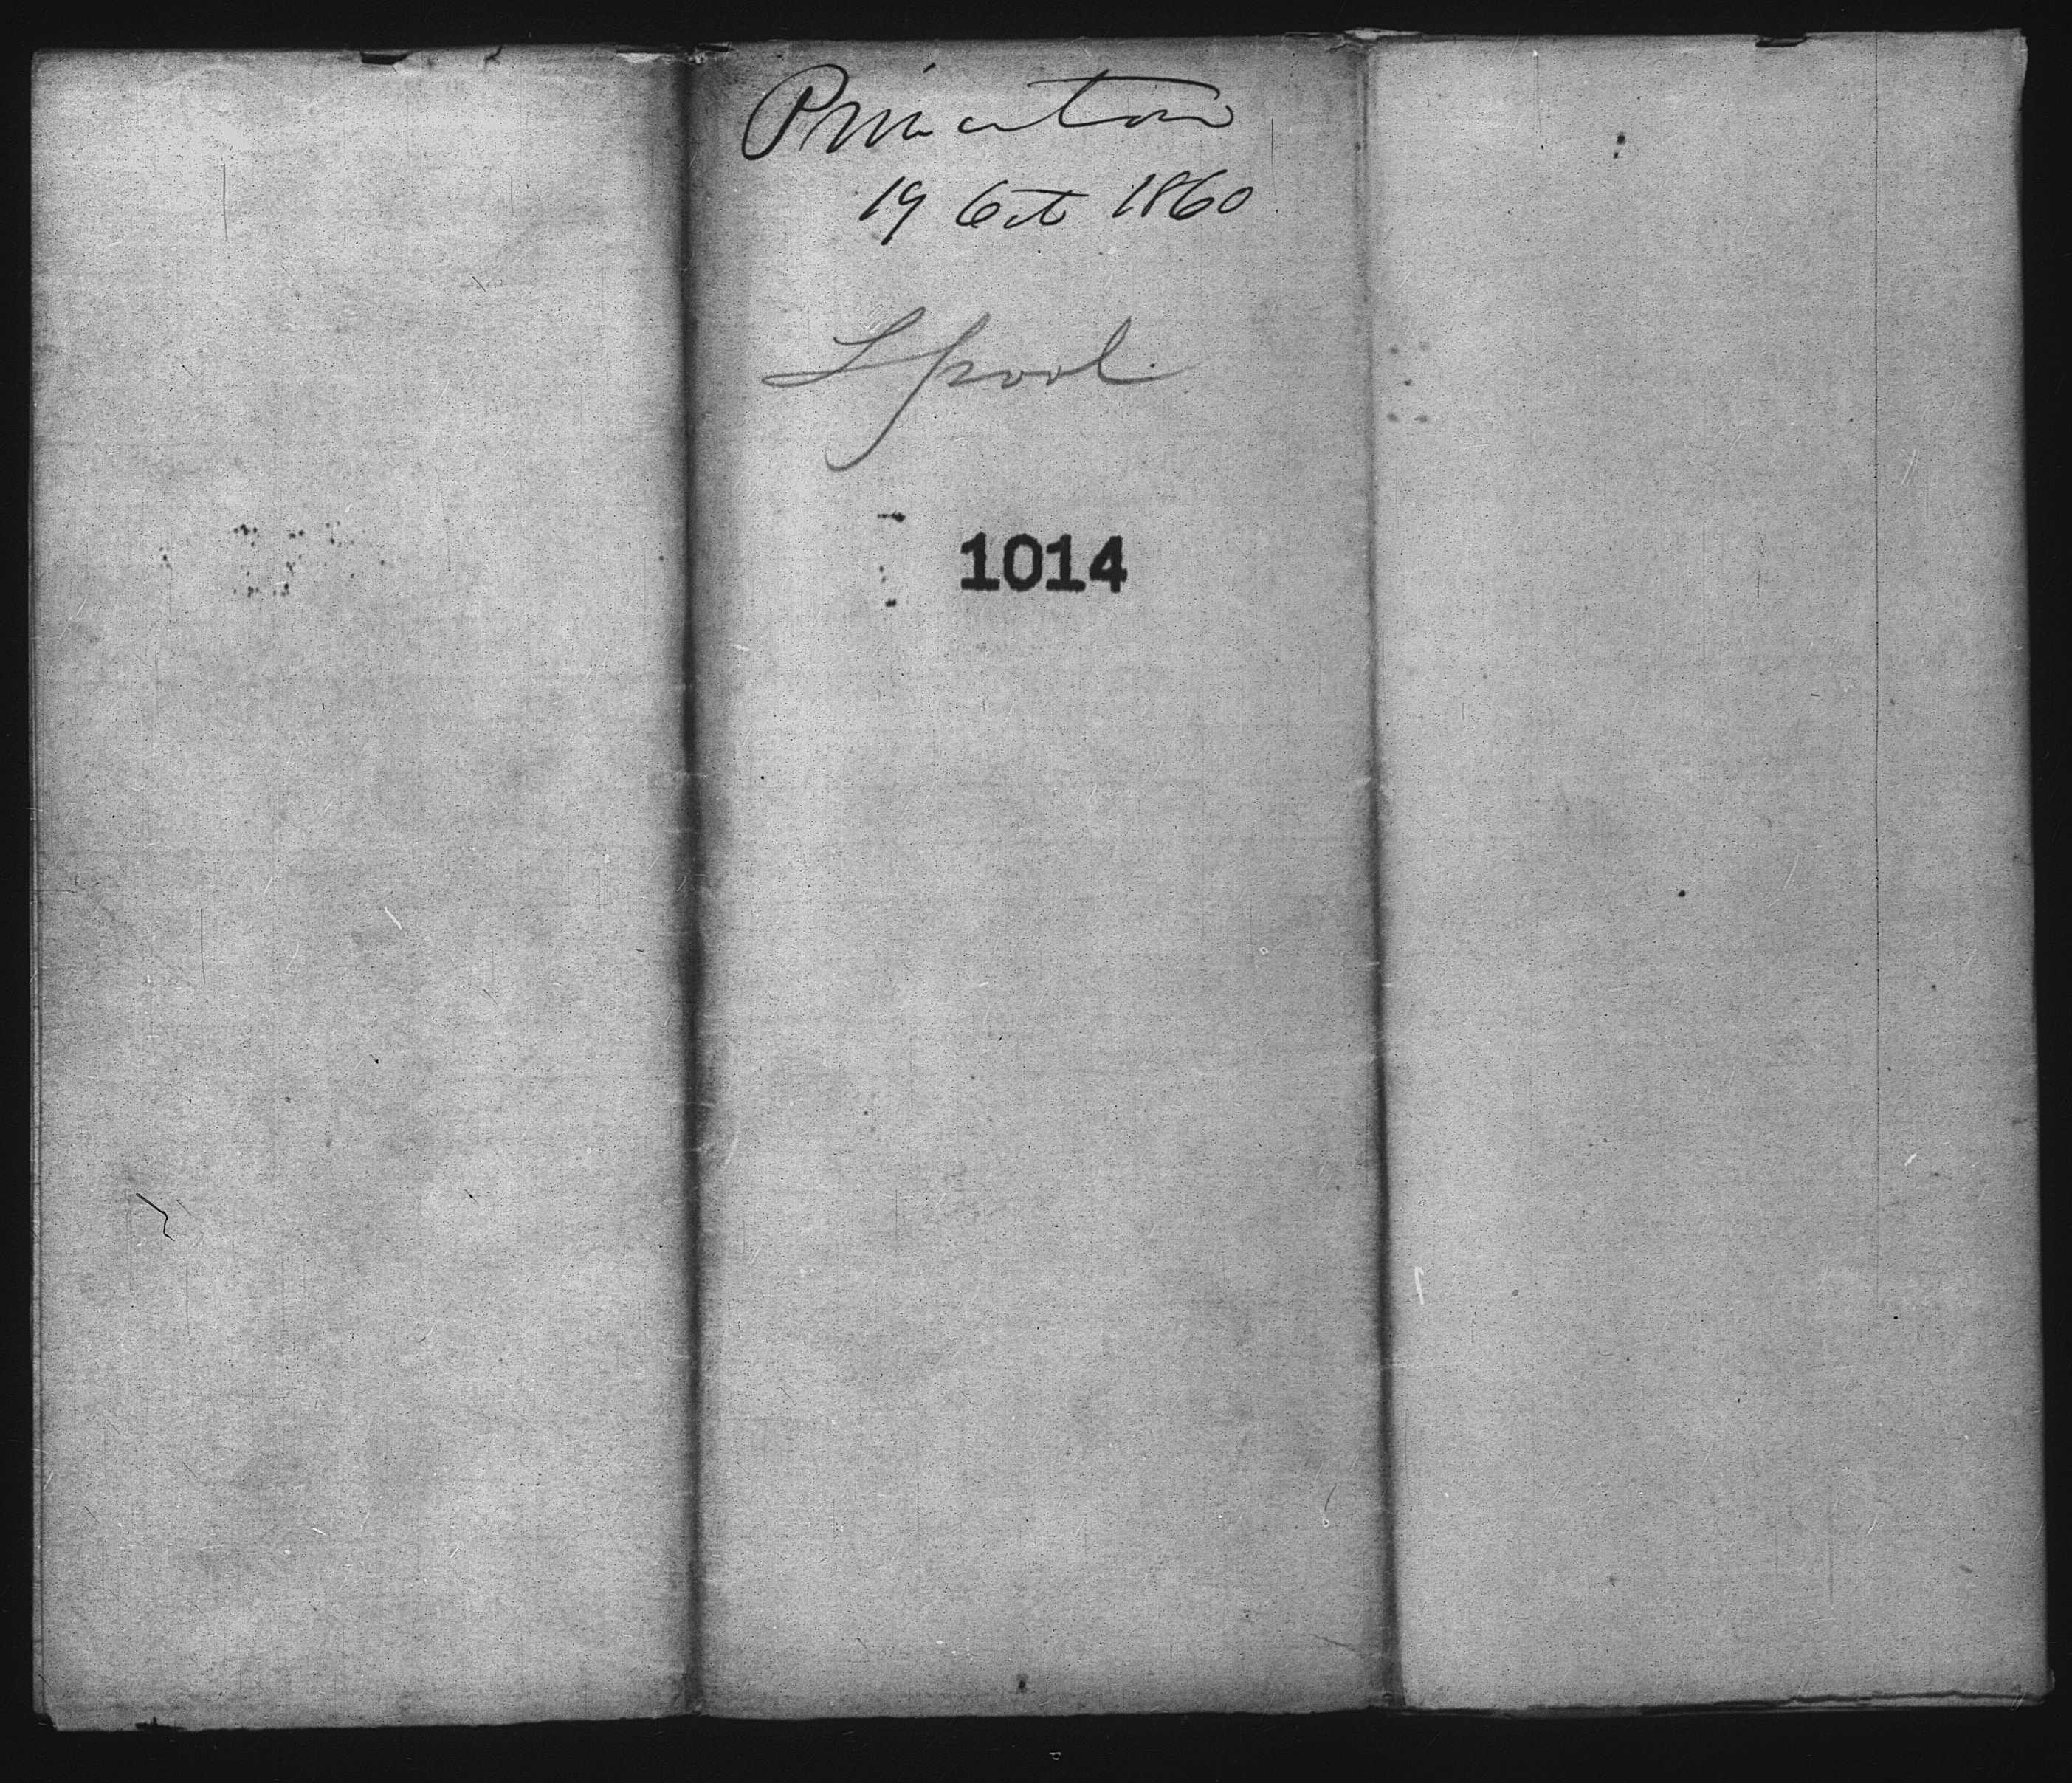 Princeton
19 Oct 1860
Lpool.
1014